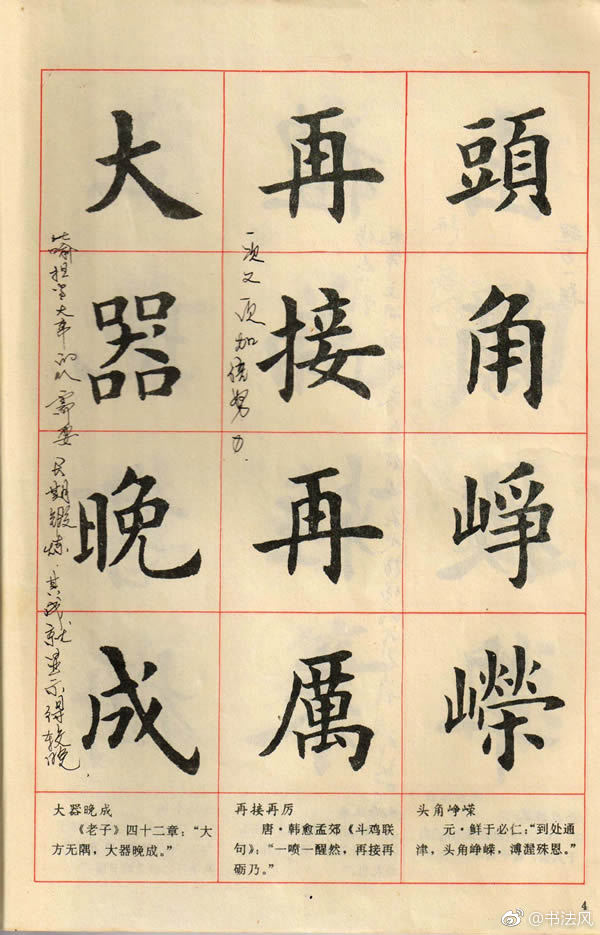 頭角崢嶸
再接再厲
大器晚成
一次又一次加倍努力.
比喻担当大事的人需要长期锻炼.其成就显示得较晚.
头角峥嵘
元·鲜于必仁:“到处通
津,头角峥嵘,溥渥殊恩。”
再接再厉
唐·韩愈孟郊《斗鸡联
句》:“一喷一醒然,再接再
砺乃。”
大器晚成
《老子》四十二章:“大
方无隅,大器晚成。”
4
@书法风